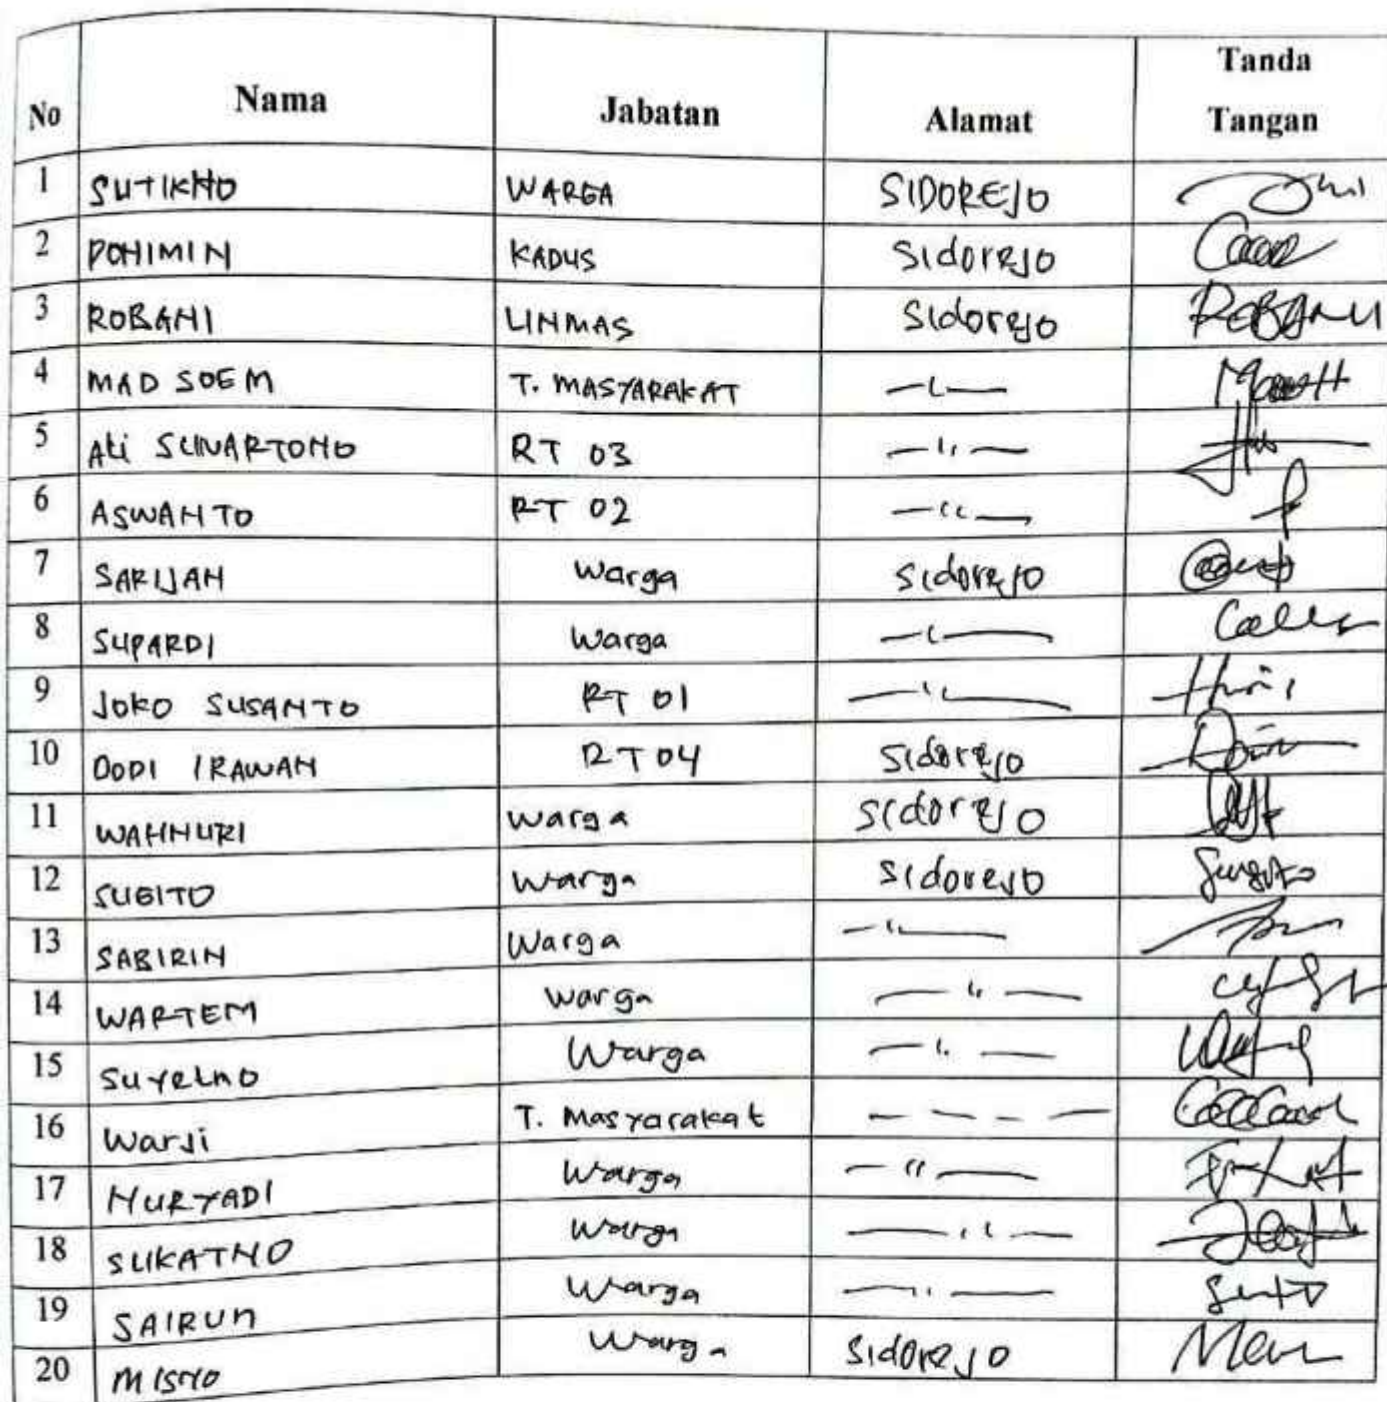 No Nama Jabatan Alamat Tanda Tangan
1 SUTIKNO WARGA SIDOREJO
2 PONIMIN KADUS Sidorejo
3 ROBANI LINMAS Sidorejo ROBANI
4 MAD SOEM T. MASYARAKAT -"-
5 ALI SUNARTONO RT 03 -"-
6 ASWANTO RT 02 -"-
7 SARIJAN Warga Sidorejo
8 SUPARDI Warga -"-
9 JOKO SUSANTO RT 01 -"-
10 DODI IRAWAN RT 04 Sidorejo
11 WAHNURI Warga Sidorejo
12 SUGITO Warga Sidorejo Sugito
13 SABIRIN Warga -"-
14 WARTEM Warga -"-
15 SUYELNO Warga -"-
16 Warji T. Masyarakat - - - -
17 NURYADI Warga -"-
18 SUKATNO Warga -"-
19 SAIRUN Warga -"-
20 MISNO Warga Sidorejo